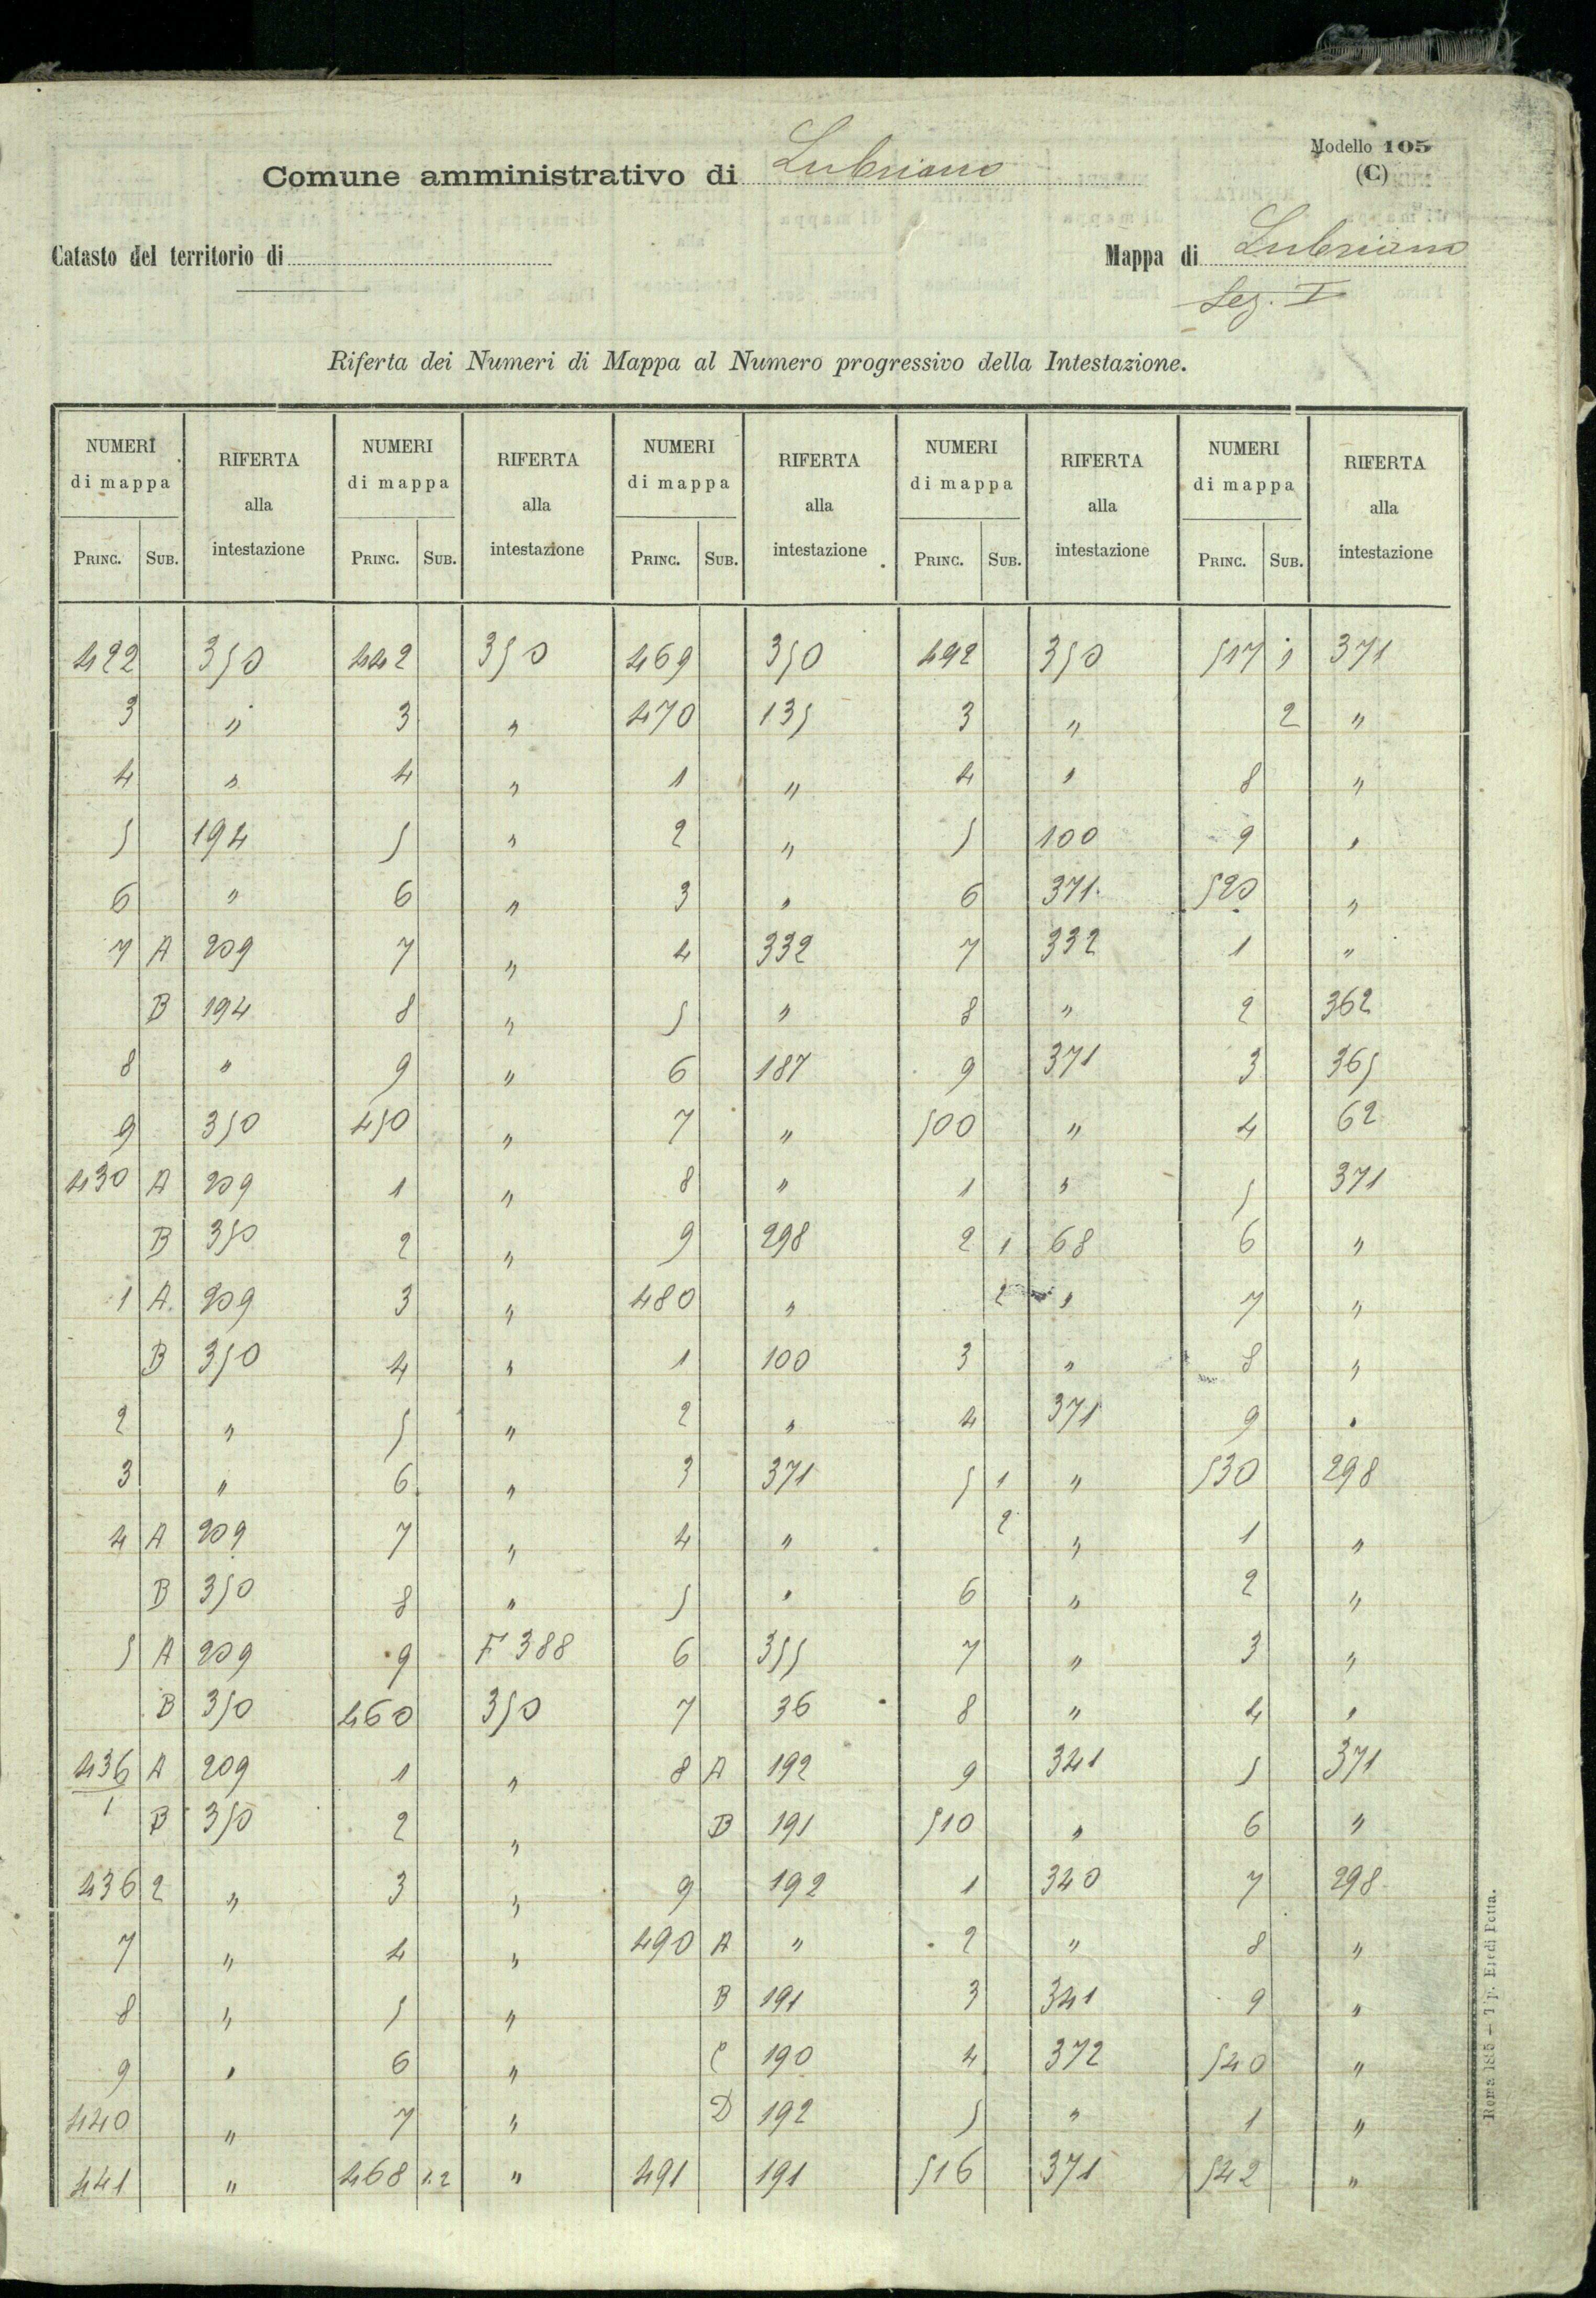 Modello 105
(C)
Comune amministrativo di Lubriano
Catasto del territorio di
Mappa di Lubriano
Sez. I
Riferta dei Numeri di Mappa al Numero progressivo della Intestazione.
NUMERI di mappa RIFERTA alla intestazione NUMERI di mappa RIFERTA alla intestazione NUMERI di mappa RIFERTA alla intestazione NUMERI di mappa RIFERTA alla intestazione NUMERI di mappa RIFERTA alla intestazione
PRINC. SUB. PRINC. SUB. PRINC. SUB. PRINC. SUB. PRINC. SUB.
422 350 442 350 469 350 492 350 517 1 371
3 " 3 " 470 135 3 " 2 "
4 " 4 " 1 " 4 " 8 "
5 194 5 " 2 " 5 100 9 "
6 " 6 " 3 " 6 371 520 "
7 A 209 7 " 4 332 7 332 1 "
B 194 8 " 5 " 8 " 2 362
8 " 9 " 6 187 9 371 3 365
9 350 450 " 7 " 500 " 4 62
430 A 209 1 " 8 " 1 " 5 371
B 350 2 " 9 298 2 1 68 6 "
1 A 209 3 " 480 " 2 " 7 "
B 350 4 " 1 100 3 " 8 "
2 " 5 " 2 " 4 371 9 "
3 " 6 " 3 371 5 1 " 530 298
4 A 209 7 " 4 " 2 " 1 "
B 350 8 " 5 " 6 " 2 "
5 A 209 9 F 388 6 355 7 " 3 "
B 350 460 350 7 36 8 " 4 "
436/1 A 209 1 " 8 A 192 9 341 5 371
B 350 2 " B 191 510 " 6 "
436 2 " 3 " 9 192 1 340 7 298
7 " 4 " 490 A " 2 " 8 "
8 " 5 " B 191 3 341 9 "
9 " 6 " C 190 4 372 540 "
440 " 7 " D 192 5 " 1 "
441 " 468 1.2 " 491 191 516 371 542 "